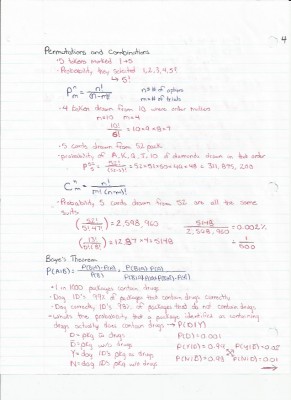 4
Permutations and Combinations
· 5 tokens marked 1→5
· Probability they selected 1,2,3,4,5?
↳ 5!
P^n_m = n!/(n-m)! n = # of options
m = # of trials
· 4 taken from 10 where order matters
n=10 m=4
10!/6! = 10×9×8×7
· 5 cards drawn from 52 pack
· probability of A, K, Q, J, 10 of diamonds drawn in that order
= 52×51×50×49×48 = 311,875,200
C^n_m = n!/m!(n-m)!
· Probability 5 cards drawn from 52 are all the same
suits
(52!/5!·47!) = 2,598,960 5148/2,598,960 = 0.002%
(13!/5!8!) = 1287×4=5148 = 1/500
Baye's Theorem
P(A|B) =
· 1 in 1000 packages contain drugs
· Dog ID's 99% of packages that contain drugs correctly
· Dog correctly ID's 98% of packages that do not contain drugs
· Whats the probability that a package identified as containing
drugs actually does contain drugs → P(D|Y)
D = pkg w drugs P(D) = 0.001
D̄ = pkg w/o drugs P(Y|D) = 0.99 P(Y|D̄) = 0.02
Y = dog ID's pkg w drugs P(N|D̄) = 0.98 P(N|D) = 0.01
N = dog ID's pkg w/o drugs →